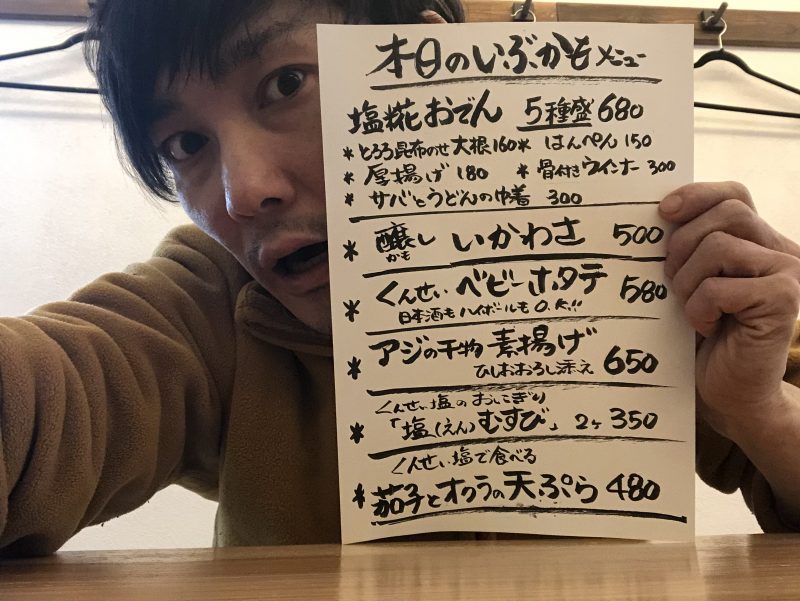 本日のいぶかもメニュー
塩糀おでん 5種盛680
*とろろ昆布のせ大根160 *はんぺん150
*厚揚げ180 *骨付きウインナー300
*サバとうどんの巾着 300
*醸し いかわさ 500
かも
*くんせいベビーホタテ 580
日本酒もハイボールもO.K!!
*アジの干物 素揚げ 650
ひしおおろし添え
くんせい塩のおにぎり
*「塩(えん)むすび」2ヶ350
くんせい塩で食べる
*茄子とオクラの天ぷら480